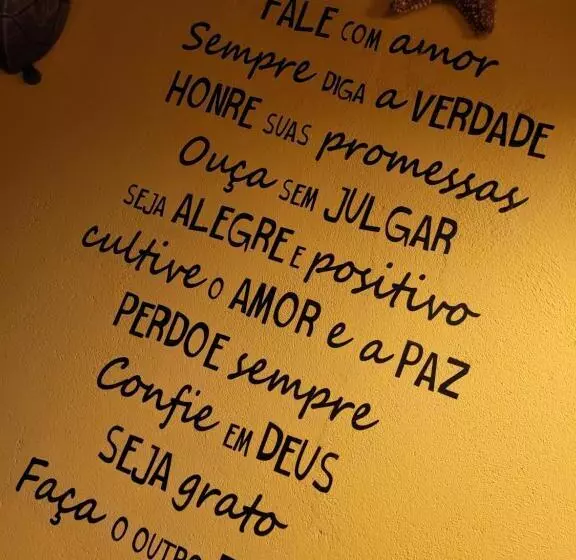 FALE COM amor
Sempre DIGA a VERDADE
HONRE SUAS promessas
Ouça SEM JULGAR
SEJA ALEGRE E positivo
cultive O AMOR e a PAZ
PERDOE sempre
Confie EM DEUS
SEJA grato
Faça O OUTRO